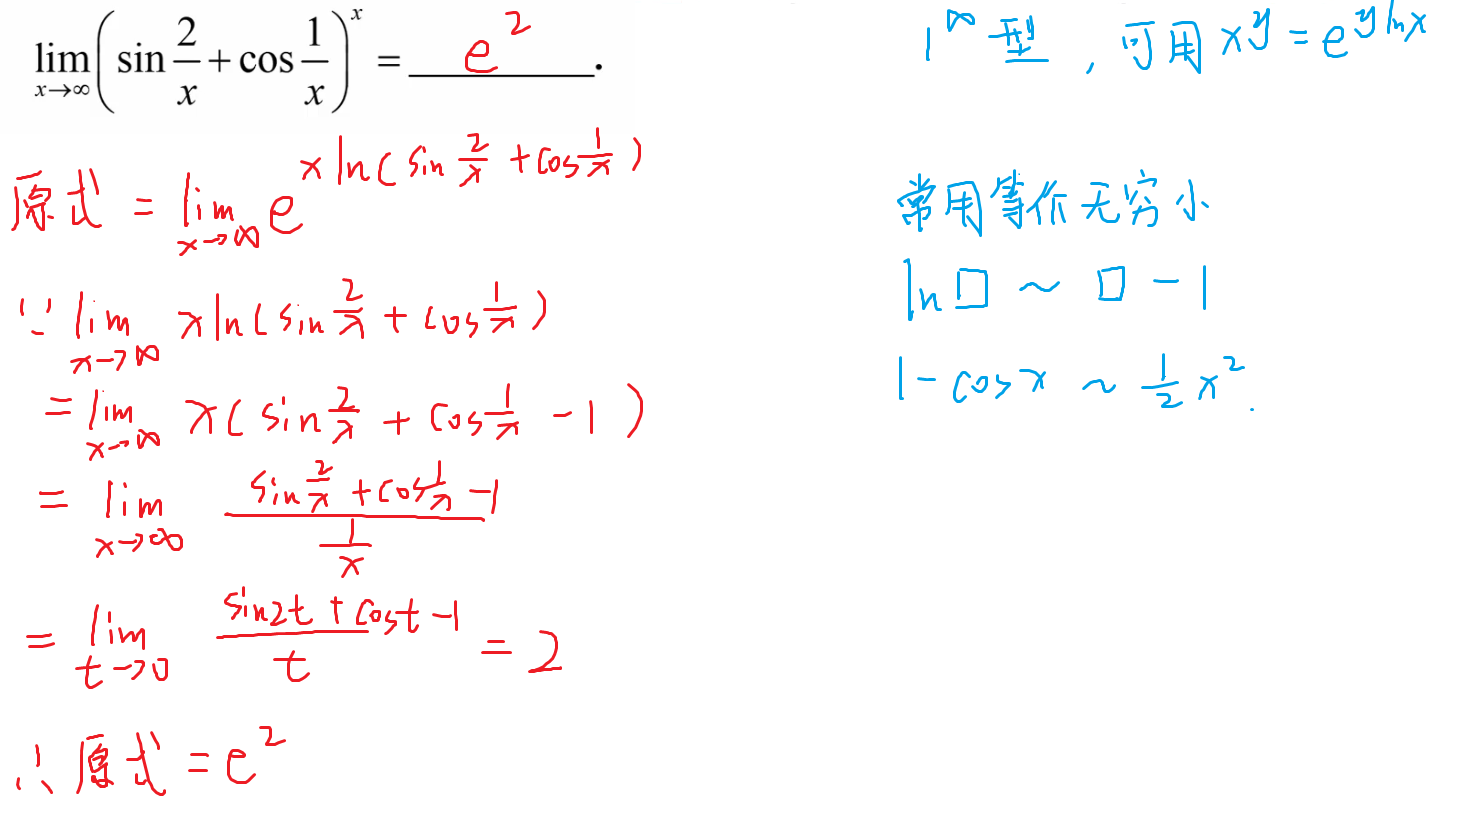 lim_{x→∞} (sin 2/x + cos 1/x)^x = e^2 .
原式 = lim_{x→∞} e^{x ln(sin 2/x + cos 1/x)}
∵ lim_{x→∞} x ln(sin 2/x + cos 1/x)
= lim_{x→∞} x(sin 2/x + cos 1/x - 1)
= lim_{x→∞} (sin 2/x + cos 1/x - 1)/(1/x)
= lim_{t→0} (sin2t + cost - 1)/t = 2
∴ 原式 = e^2
1^∞ 型 , 可用 x^y = e^{y ln x}
常用等价无穷小
ln□ ~ □ - 1
1 - cosx ~ 1/2 x^2 .